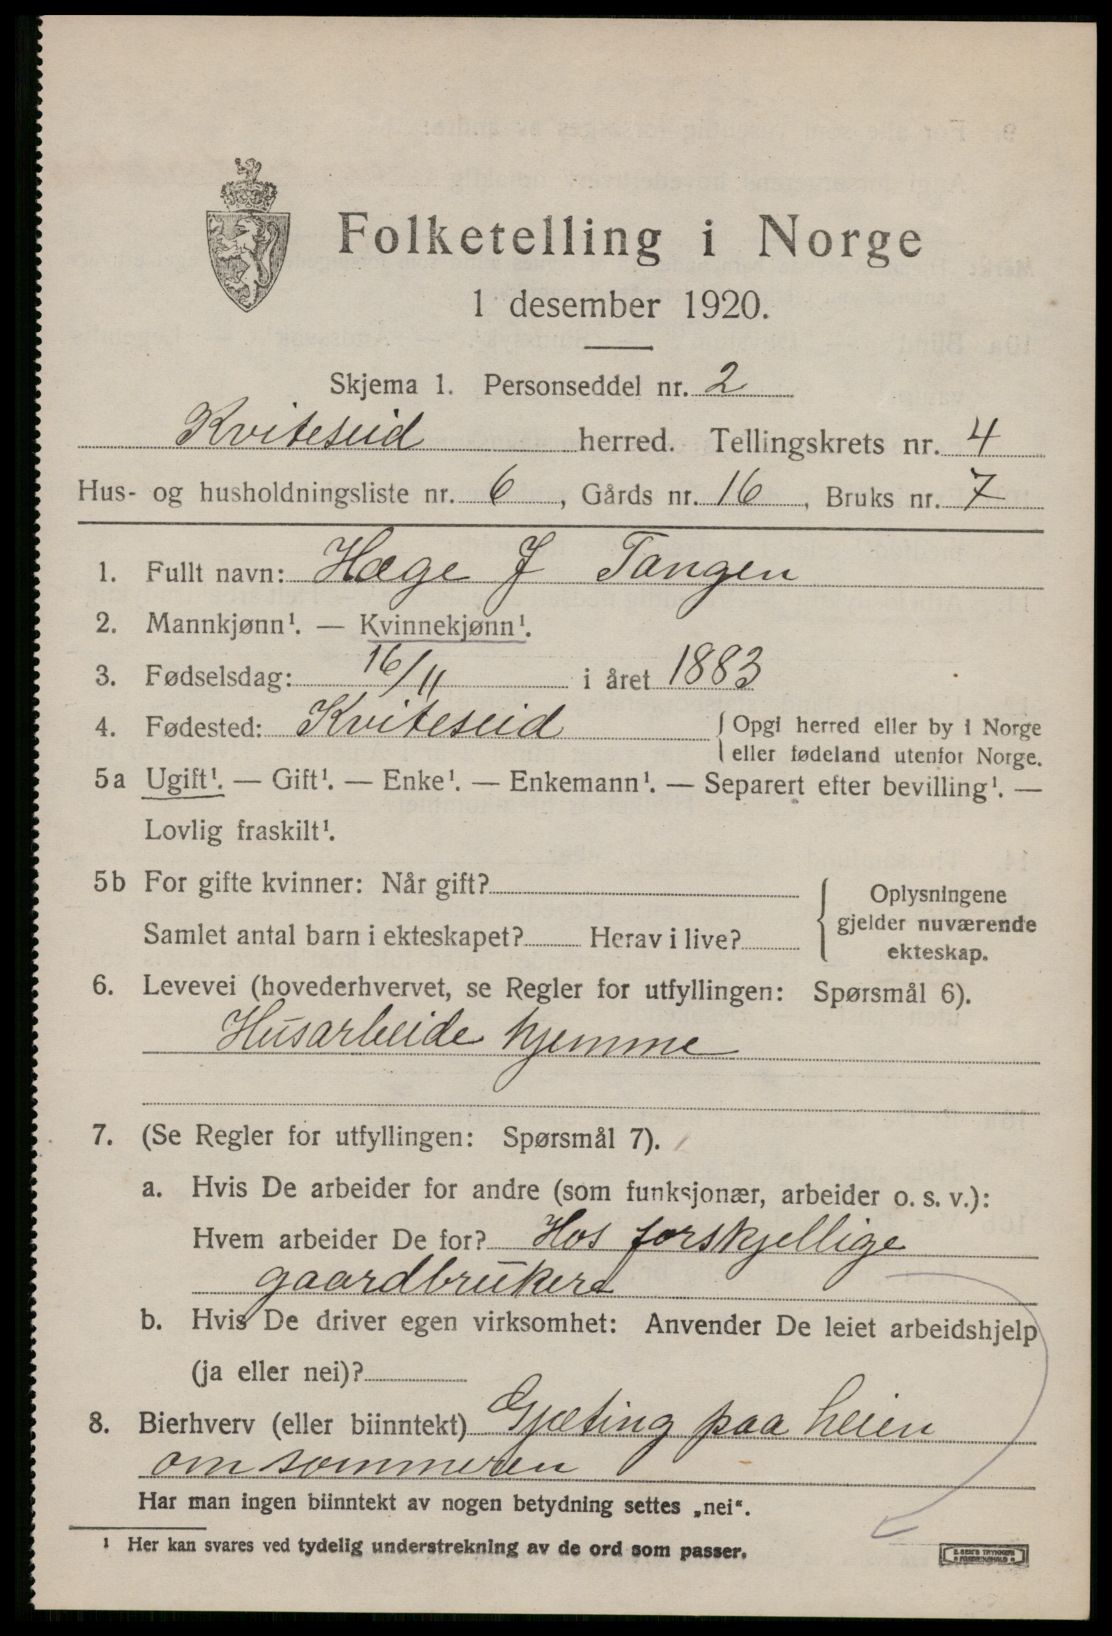 Folketelling i Norge
1 desember 1920.
Skjema 1. Personseddel nr. 2
Kviteseid herred. Tellingskrets nr. 4
Hus- og husholdningsliste nr. 6, Gårds nr. 16, Bruks nr. 7
1. Fullt navn: Hæge J Tangen
2. Mannkjønn¹. — Kvinnekjønn¹.
3. Fødselsdag: 16/11 i året 1883
4. Fødested: Kviteseid { Opgi herred eller by i Norge
eller fødeland utenfor Norge.
5a Ugift¹. — Gift¹. — Enke¹. — Enkemann¹. — Separert efter bevilling¹. —
Lovlig fraskilt¹.
5b For gifte kvinner: Når gift?
Samlet antal barn i ekteskapet? Herav i live?
{ Oplysningene
gjelder nuværende
ekteskap.
6. Levevei (hovederhvervet, se Regler for utfyllingen: Spørsmål 6).
Husarbeide hjemme
7. (Se Regler for utfyllingen: Spørsmål 7).
a. Hvis De arbeider for andre (som funksjonær, arbeider o. s. v.):
Hvem arbeider De for? Hos forskjellige
gaardbrukere
b. Hvis De driver egen virksomhet: Anvender De leiet arbeidshjelp
(ja eller nei)?
8. Bierhverv (eller biinntekt) Gjæting paa heien
om sommeren
Har man ingen biinntekt av nogen betydning settes „nei“.
¹ Her kan svares ved tydelig understrekning av de ord som passer.